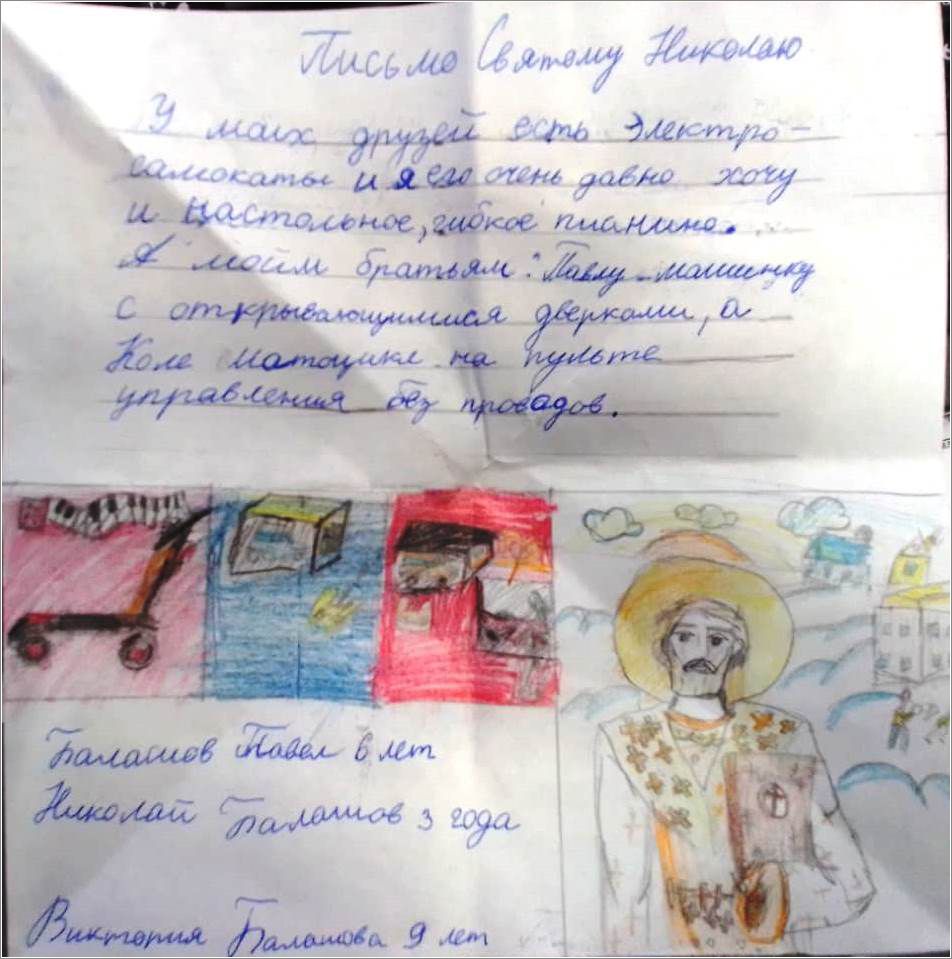 Письмо Святому Николаю
У моих друзей есть электро-
самокаты и я его очень давно хочу
и настольное, гибкое пианино.
А моим братьям: Павлу машинку
с открывающимися дверками, а
Коле матоцикл на пульте
управления без проводов.
Балашов Павел 6 лет
Николай Балашов 3 года
Виктория Балашова 9 лет